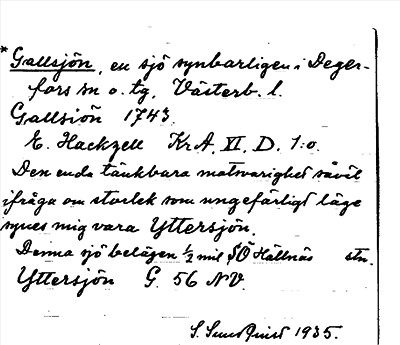 *Gallsjön, en sjö synbarligen i Deger-
fors sn o. tg, Västerb. l.
Gallsiön 1743.
E. Hackzell KrA. VI. D. 1:0.
Den enda tänkbara motsvarighet såväl
ifråga om storlek som ungefärligt läge
synes mig vara Yttersjön.
Denna sjö belägen ½ mil SÖ Hällnäs stn.
Yttersjön G. 56 NV.
S. Sundqvist 1935.